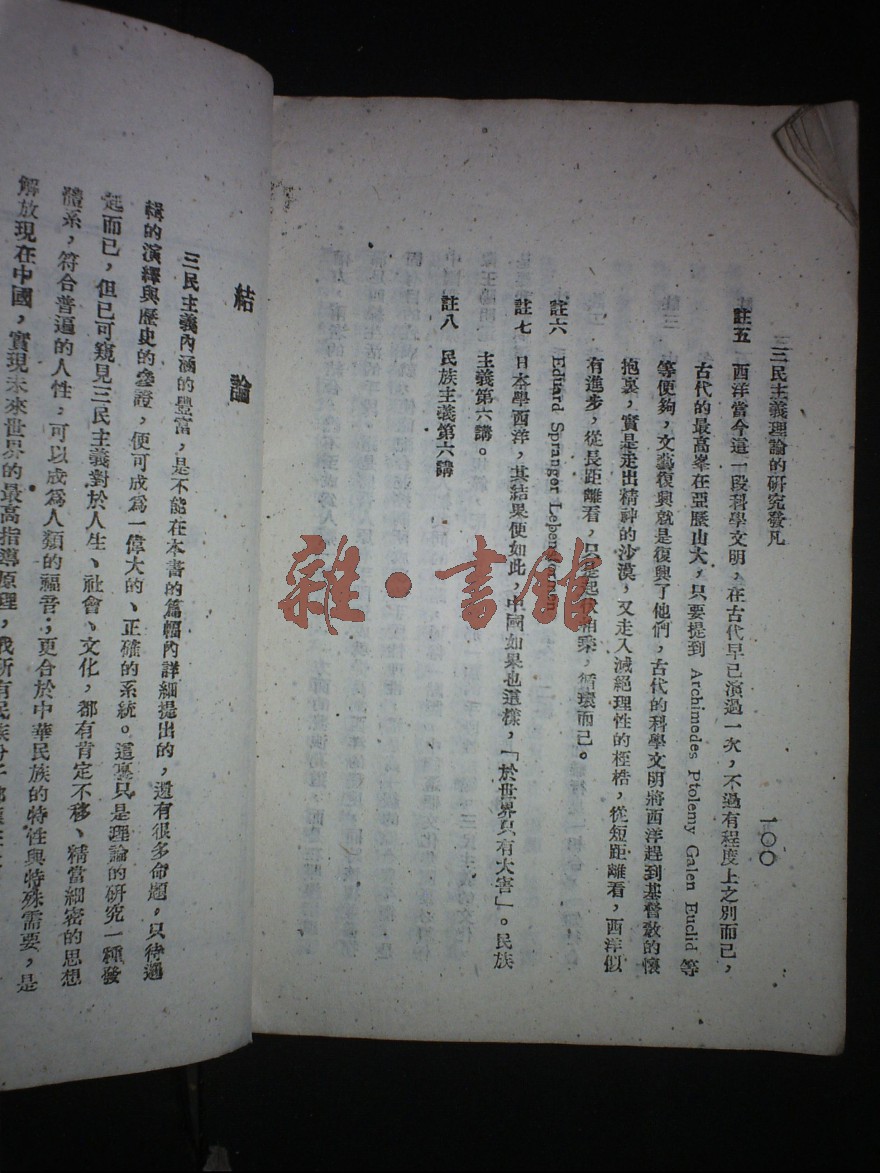 三民主義理論的研究發凡
一〇〇
註五 西洋當今這一段科學文明，在古代早已演過一次，不過有程度上之別而已，
古代的最高峯在亞歷山大，只要提到 Archimodes Ptolemy Galen Euclid 等
等便夠，文藝復興就是復興了他們，古代的科學文明將西洋趕到基督教的懷
抱裏，實是走出精神的沙漠，又走入滅絕理性的桎梏，從短距離看，西洋似
有進步，從長距離看，只是起伏相乘，循環而已。
註六 Eduard Spranger
註七 日本學西洋，其結果便如此，中國如果也這樣，「於世界只有大害」。民族
主義第六講。
註八 民族主義第六講
結論
三民主義內涵的豐富，是不能在本書的篇幅內詳細提出的，還有很多命題，只待邏
輯的演繹與歷史的參證，便可成爲一偉大的、正確的系統。這裏只是理論的研究一種發
起而已，但已可窺見三民主義對於人生、社會、文化，都有肯定不移、精當細密的思想
體系，符合普遍的人性，可以成爲人類的福音；更合於中華民族的特性與特殊需要，是
解放現在中國，實現未來世界的最高指導原理，我所有民族份子
雜·書館